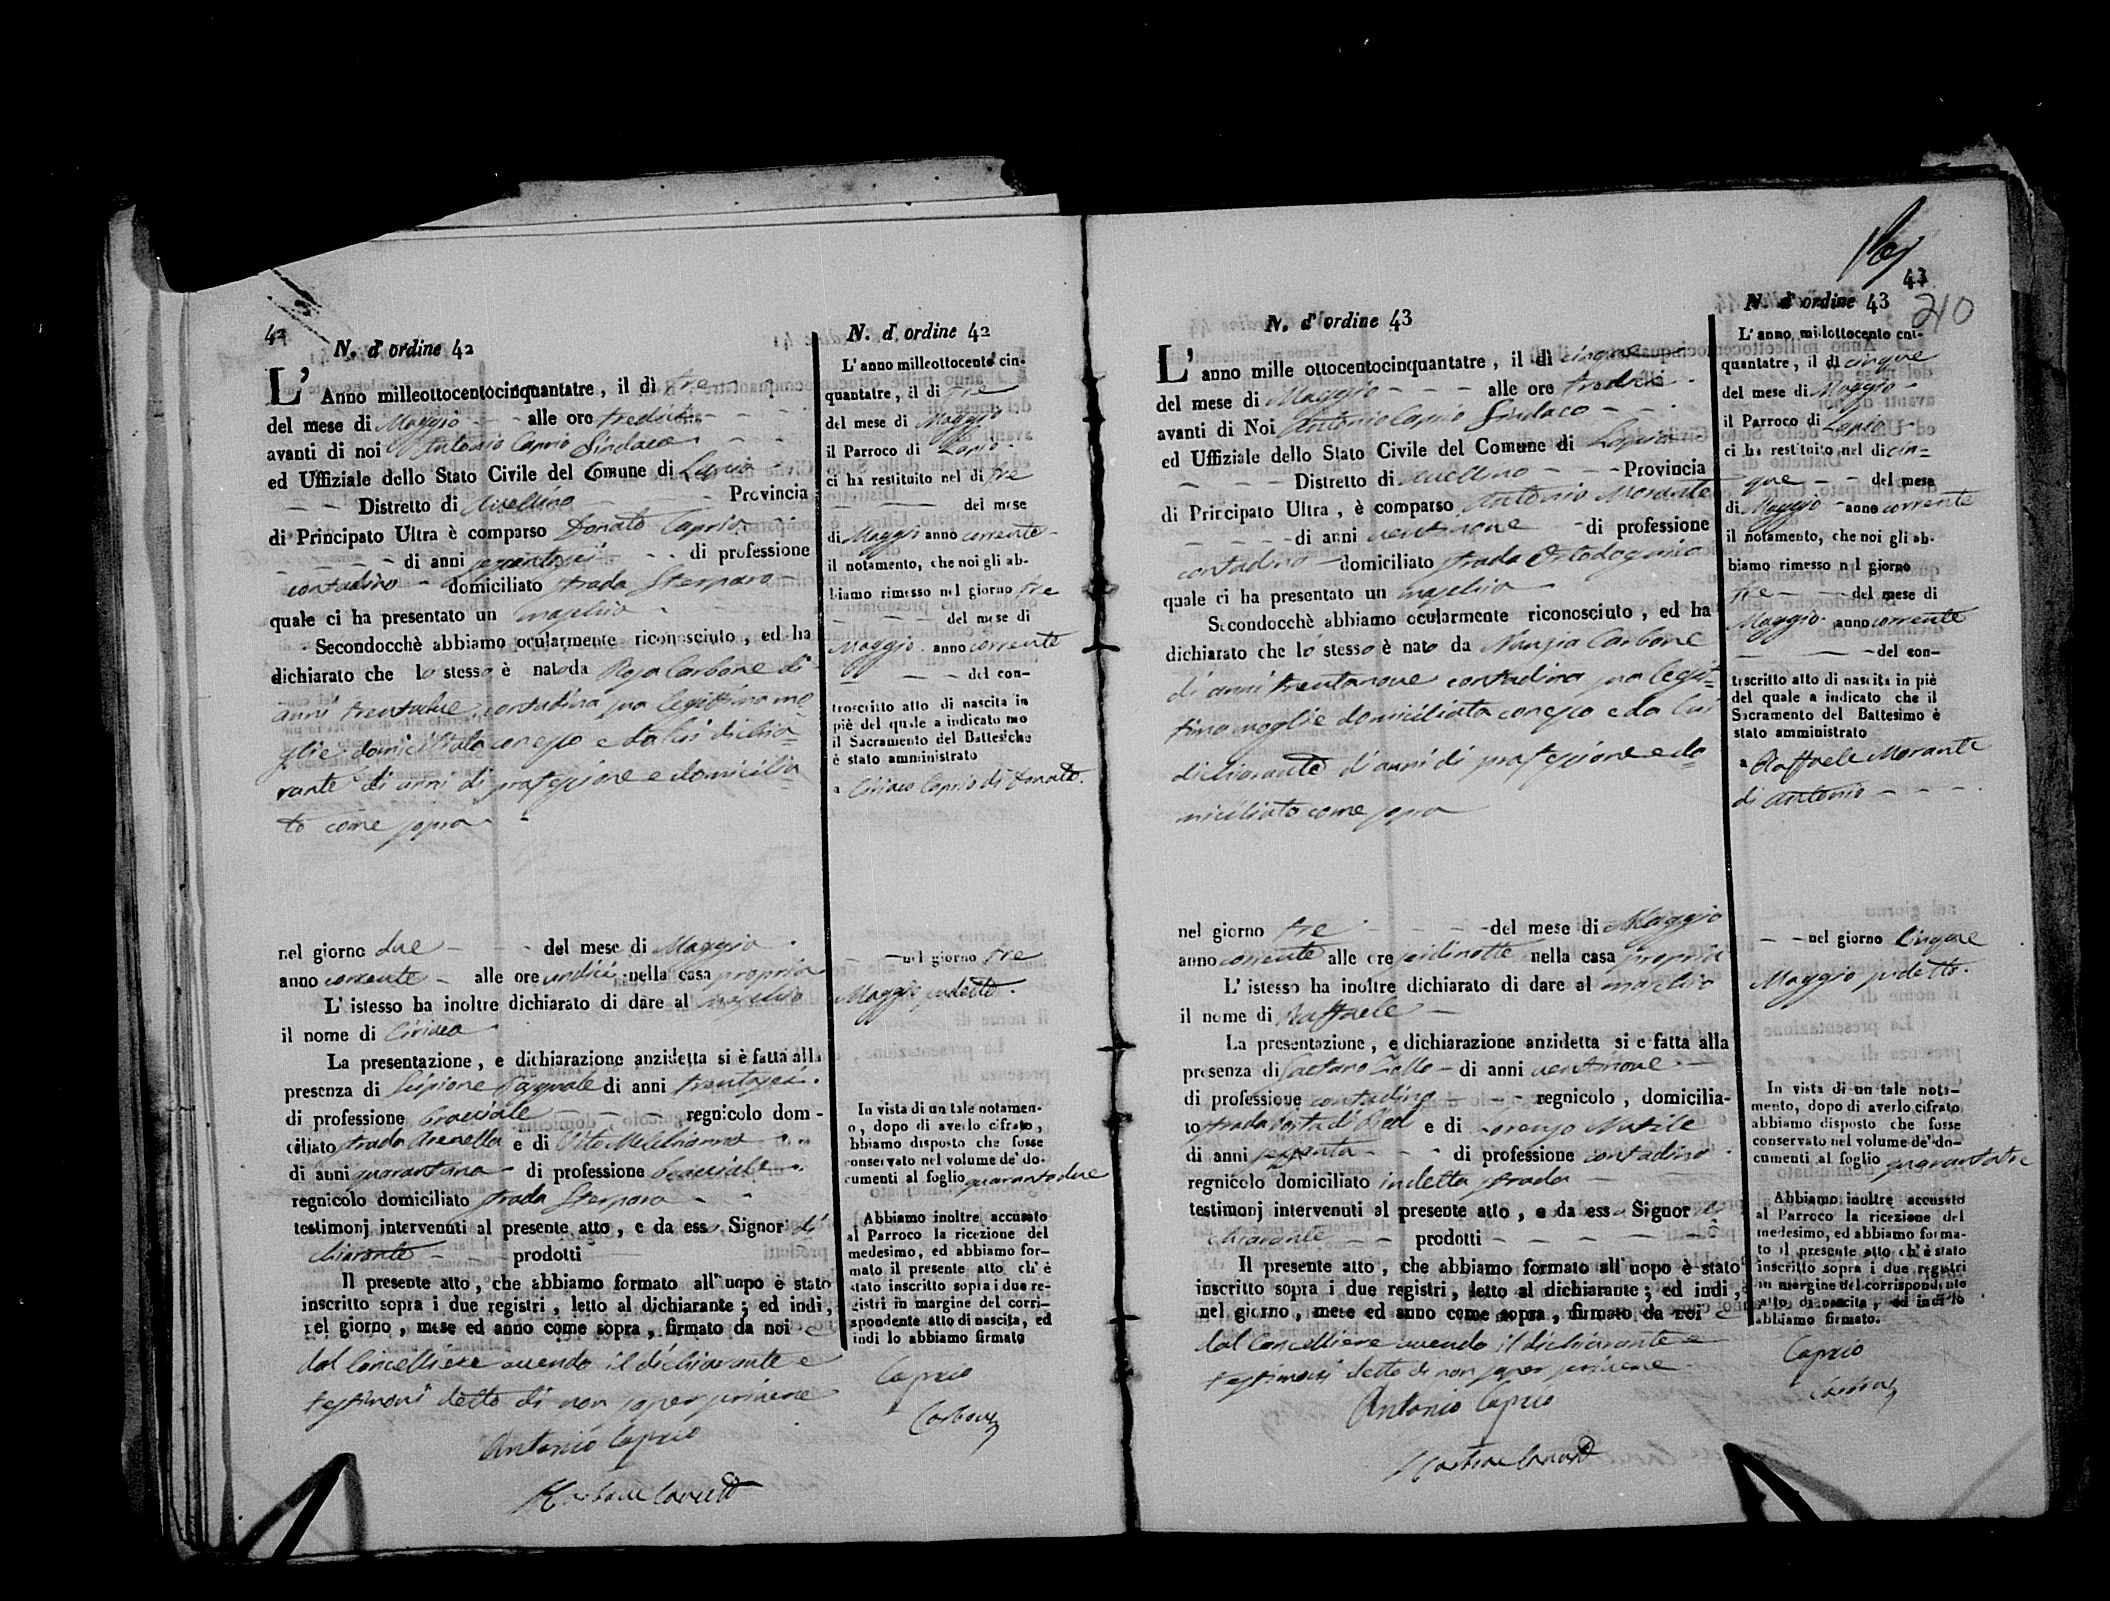 42
N. d' ordine 42
L' Anno milleottocentocinquantatre, il dì tre
del mese di Maggio alle ore tredici
avanti di noi Antonio Caprio Sindaco
ed Uffiziale dello Stato Civile del Comune di Lapio
Distretto di Avellino Provincia
di Principato Ultra è comparso Donato Caprio
di anni di professione
contadino domiciliato strada Sterparo
quale ci ha presentato un maschio
Secondocchè abbiamo ocularmente riconosciuto, ed ha
dichiarato che lo stesso è nato da Rosa Carbone di
anni trentadue contadina sua legittima mo=
glie domiciliata con esso e da lui dichia=
rante di anni di professione e domicilia=
to come sopra
nel giorno due del mese di Maggio
anno corrente alle ore undici nella casa propria
L' istesso ha inoltre dichiarato di dare al maschio
il nome di Ciriaco
La presentazione, e dichiarazione anzidetta si è fatta alla
presenza di Scipione Pasquale di anni trentasei
di professione bracciale regnicolo dom-
ciliato strada e di Vito
di anni quarantuno di professione bracciale
regnicolo domiciliato strada Sterparo
testimonj intervenuti al presente atto, e da esso Signor di
chiarante prodotti
Il presente atto, che abbiamo formato all' uopo è stato
inscritto sopra i due registri, letto al dichiarante; ed indi,
nel giorno, mese ed anno come sopra, firmato da noi e
dal Cancelliere avendo il dichiarante e
testimoni detto di non saper scrivere
Antonio Caprio
N. d' ordine 42
L' anno milleottocento cin-
quantatre, il di tre
del mese di Maggio
il Parroco di Lapio
ci ha restituito nel di tre
del mese
di Maggio anno corrente
il notamento, che noi gli ab-
biamo rimesso nel giorno tre
del mese di
Maggio anno corrente
del con-
troscritto atto di nascita in
piè del quale a indicato mo
il Sacramento del Battesiche
è stato amministrato
a Ciriaco Caprio di Donato
nel giorno tre
Maggio sudetto.
In vista di un tale notamen-
o, dopo di averlo cifrato,
bbiamo disposto che fosse
conservato nel volume de' do-
cumenti al foglio quarantadue
Abbiamo inoltre accusato
al Parroco la ricezione del
medesimo, ed abbiamo for-
mato il presente atto ch' è
stato inscritto sopra i due re-
gistri in margine del corri-
spondente atto di nascita, ed
indi lo abbiamo firmato
Caprio
Carbone
43
210
N. d' ordine 43
L' anno mille ottocentocinquantatre, il dì cinque
del mese di Maggio alle ore tredici
avanti di Noi Antonio Caprio Sindaco
ed Uffiziale dello Stato Civile del Comune di Lapio
Distretto di Avellino Provincia
di Principato Ultra, è comparso Antonio Morante
di anni ventinove di professione
contadino domiciliato strada
quale ci ha presentato un maschio
Secondocchè abbiamo ocularmente riconosciuto, ed ha
dichiarato che lo stesso è nato da Nunzia Carbone
di anni trentanove contadina sua legit=
tima moglie domiciliata con esso e da lui
dichiarante di anni di professione e do=
miciliato come sopra
nel giorno tre del mese di Maggio
anno corrente alle ore sedici nella casa propria
L' istesso ha inoltre dichiarato di dare al maschio
il nome di Raffaele
La presentazione, e dichiarazione anzidetta si è fatta alla
presenza di Gaetano di anni ventinove
di professione contadino regnicolo, domicilia-
to strada e di Lorenzo
di anni sessanta di professione contadino
regnicolo domiciliato in detta strada
testimonj intervenuti al presente atto, e da esso Signor di
chiarante prodotti
Il presente atto, che abbiamo formato all' uopo è stato
inscritto sopra i due registri, letto al dichiarante; ed indi,
nel giorno, mese ed anno come sopra, firmato da noi e
dal Cancelliere avendo il dichiarante e
testimoni detto di non saper scrivere
Antonio Caprio
N. d' ordine 43
L' anno millottocento cin-
quantatre, il di cinque
del mese di Maggio
il Parroco di Lapio
ci ha restituito nel di cin=
que del mese
di Maggio anno corrente
il notamento, che noi gli ab-
biamo rimesso nel giorno
tre del mese di
Maggio anno corrente
del con-
troscritto atto di nascita in piè
del quale a indicato che il
Sacramento del Battesimo è
stato amministrato
a Raffaele Morante
di Antonio
nel giorno Cinque
Maggio sudetto.
In vista di un tale nota-
mento, dopo di averlo cifrato
abbiamo disposto che fosse
conservato nel volume de' do-
cumenti al foglio quarantatre
Abbiamo inoltre accusato
al Parroco la ricezione del
medesimo, ed abbiamo forma-
to il presente atto ch' è stato
inscritto sopra i due registri
in margine del corrispondente
atto di nascita, ed indi lo
abbiamo firmato.
Caprio
Carbone